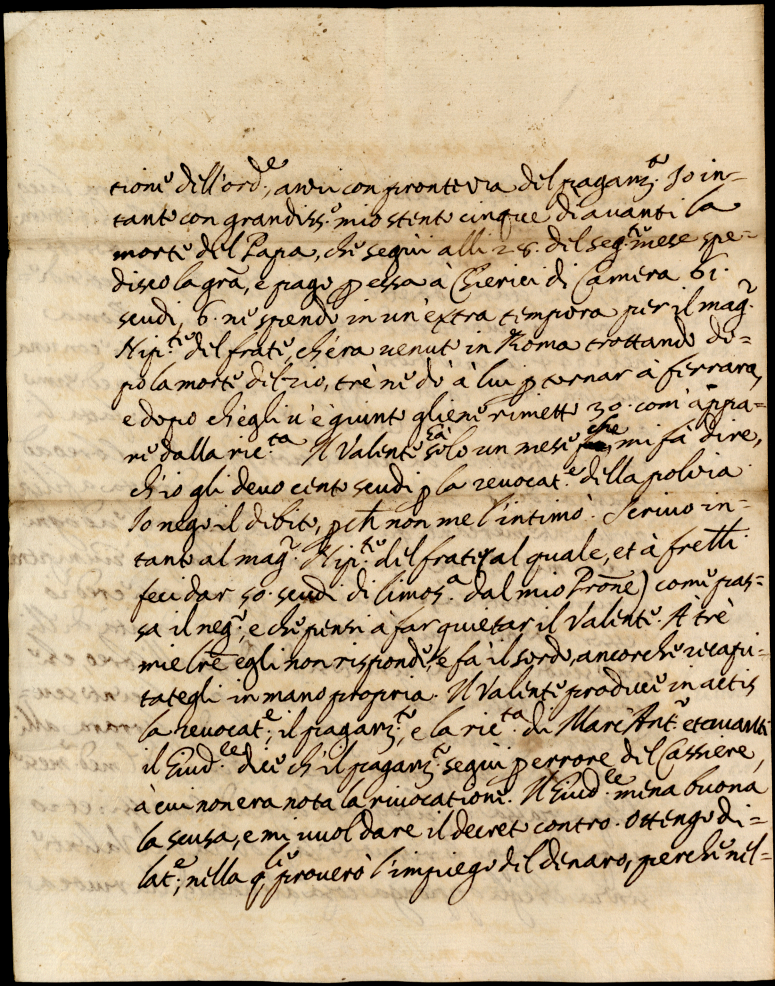 tione dell'ord.e, anzi con prontezza del pagam.to Io in-
tanto con grandiss.o mio stento cinque dì avanti la
morte del Papa, che seguì alli 28. del seg.te mese spe-
disco la grã, e pago p essa à Chierici di Camera 61.
scudi, 6. ne spendo in un'extra tempora per il mag.r
Nip.te del frate, ch'era venuto in Roma trottando do-
po la morte del zio, trè ne dò à lui p tornar à ferrara,
e dopo ch'egli v'è giunto gliene rimetto 30. com'appa-
re dalla ric.ta Il Valente Già solo un mese che, mi fà dire,
ch'io gli devo cento scudi p la revocat.e della poliza
Io nego il debito, pch non me l'intimò. Scrivo in-
tanto al mag.r Nip.te del frate (al quale, et à frelli
feci dar 50. scudi di limos.a dal mio Prone) come pas-
sa il neg.o, e che pensi à far quietar il Valente. A trè
mie lre egli non risponde, e fà il sordo, ancorche recapi-
tategli in mano propria. Il Valente produce in actis
la revocat.e, il pagam.to, e la ric.ta di Marc'Ant.o et avanti
il Giud.ce dice ch'il pagam.to seguì p errore del Cassiere,
à cui non era nota la rivocatione. Il Giud.ce mena buona
la scusa, e mi vuol dare il decreto contro. Ottengo di-
lat.e, nella q.le proverò l'impiego del denaro, perche nel-